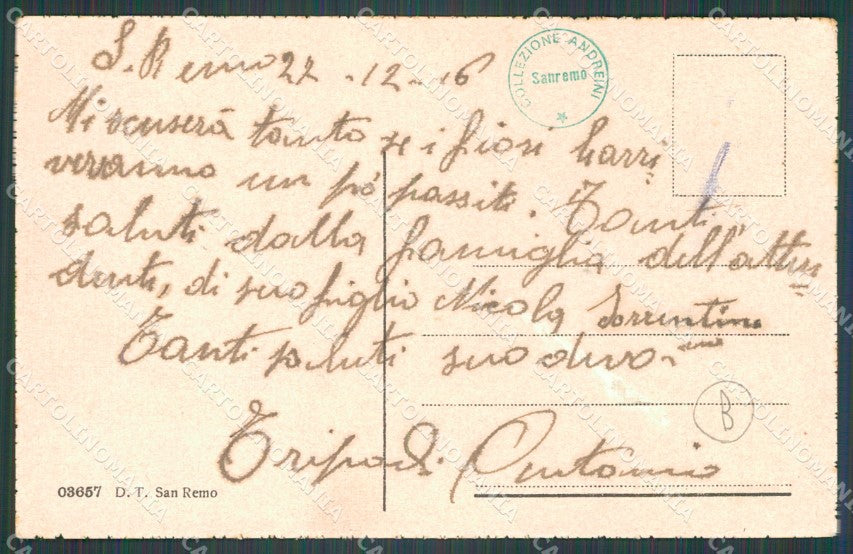 S. Remo 22 - 12 - 16
COLLEZIONE ANDREINI
Sanremo
Mi scuserà tanto se i fiori l'arri
veranno un pó passiti. Tanti
saluti dalla famiglia dell'atten
denti, di suo figlio Nicola Sorrentino
Tanti saluti suo devo-
mo
Tripodi Antonio
B
03657 D. T. San Remo
CARTOLINOMANIA